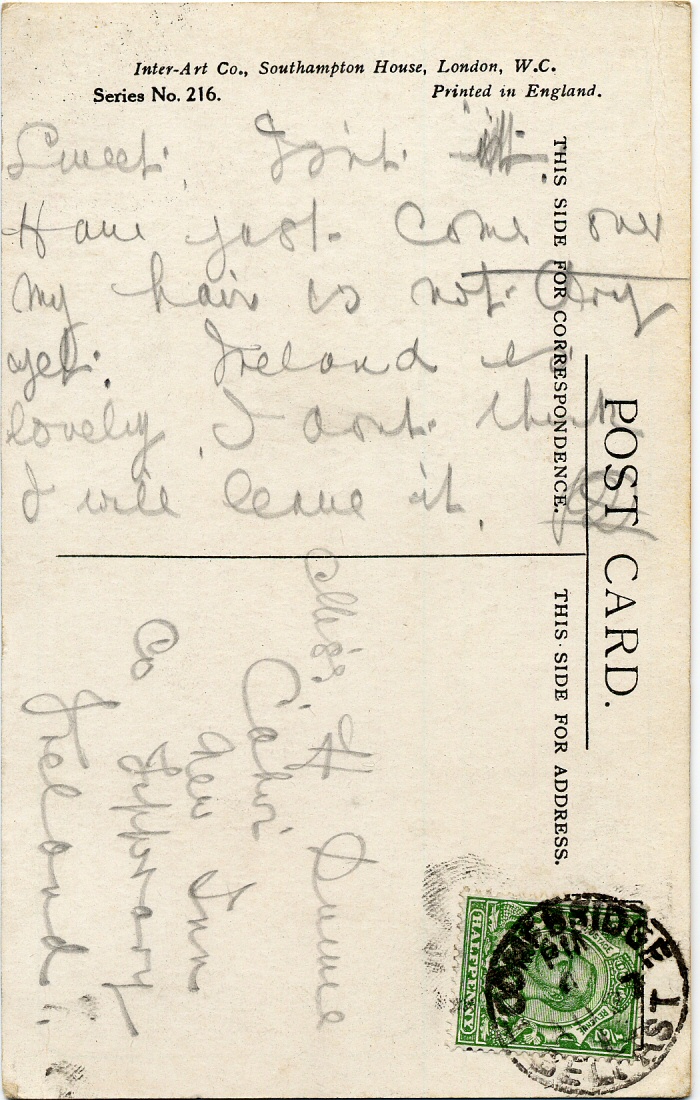 Inter-Art Co., Southampton House, London, W.C.
Series No. 216. Printed in England.
Sweet, Isn't it.
Have just come over
my hair is not dry
yet. Ireland is
lovely, I dont think
I will leave it.
POST CARD.
THIS SIDE FOR CORRESPONDENCE.
THIS SIDE FOR ADDRESS.
Miss H Dunne
Cahir
New Inn
Co Tipperary
Ireland.
HALFPENNY
REVENUE
BRIDGE
BELFAST